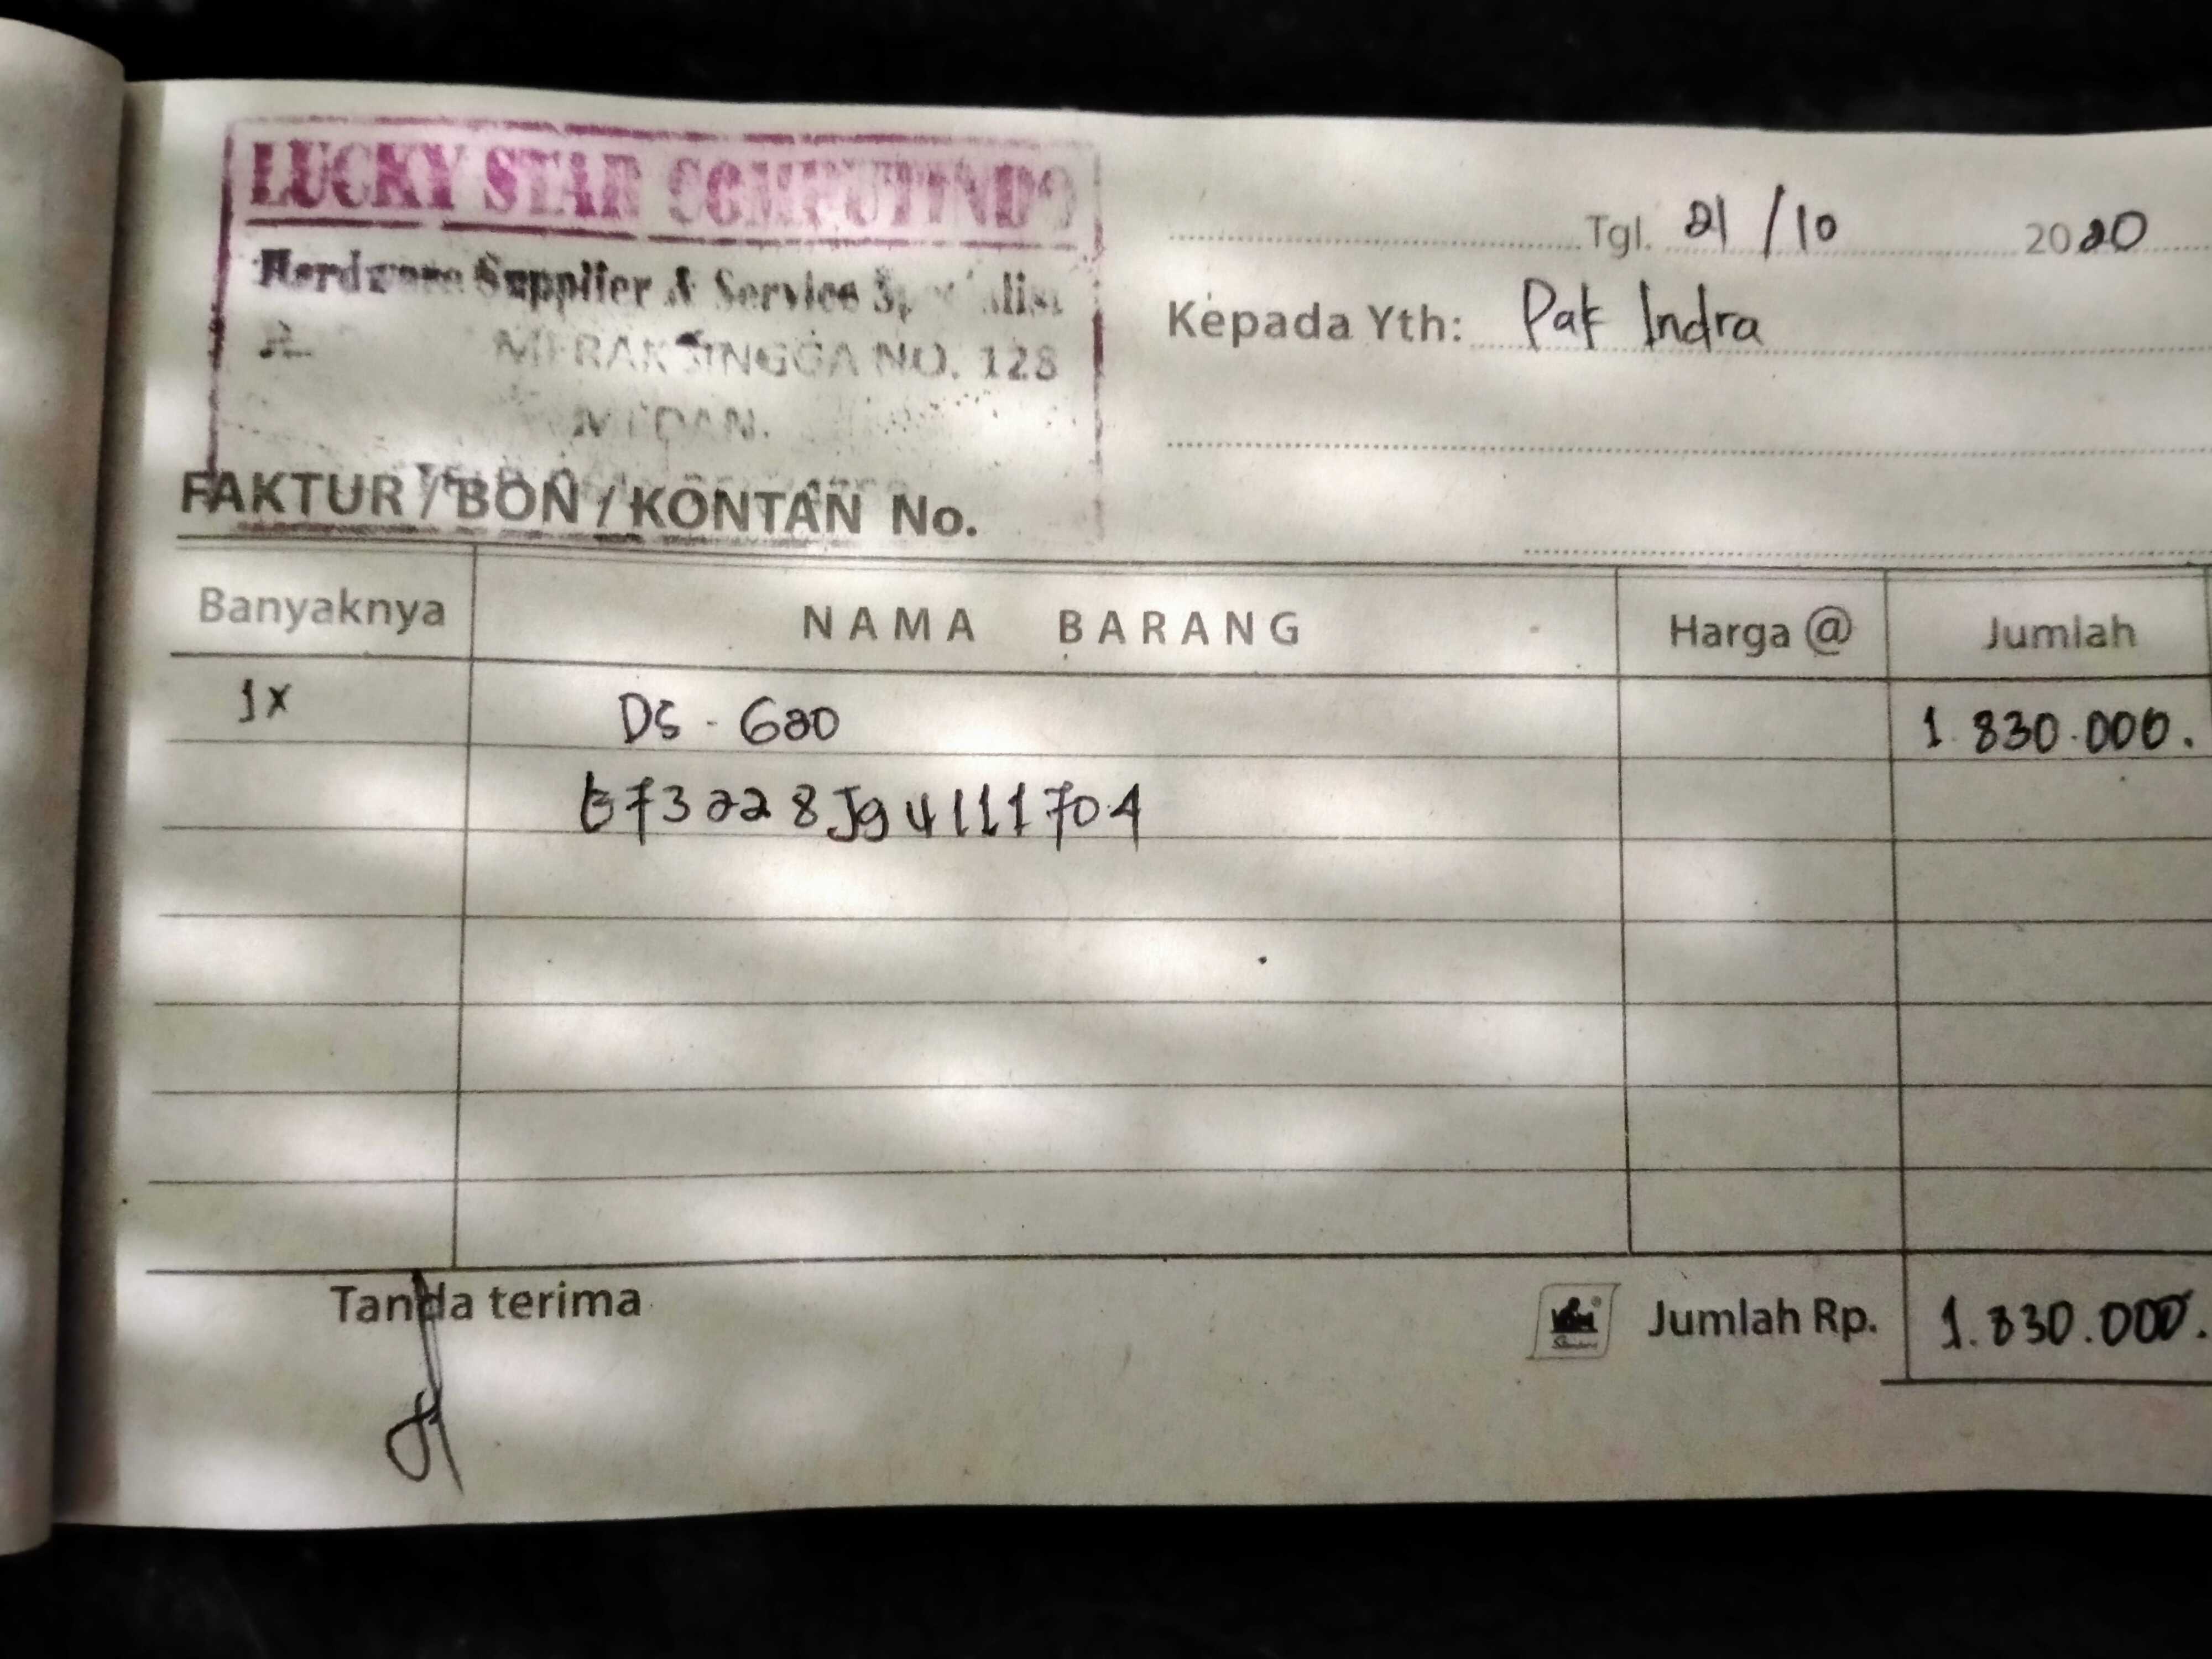 LUCKY STAR COMPUTINDO
Hardware Supplier & Service
MERAK JINGGA NO. 128
MEDAN.
Tgl. 21/10 2020
Kepada Yth: Pak Indra
FAKTUR / BON / KONTAN No.
Banyaknya NAMA BARANG Harga @ Jumlah
1x DS - 620 1.830.000.
E73228J9U111704
Tanda terima
Jumlah Rp. 1.830.000.